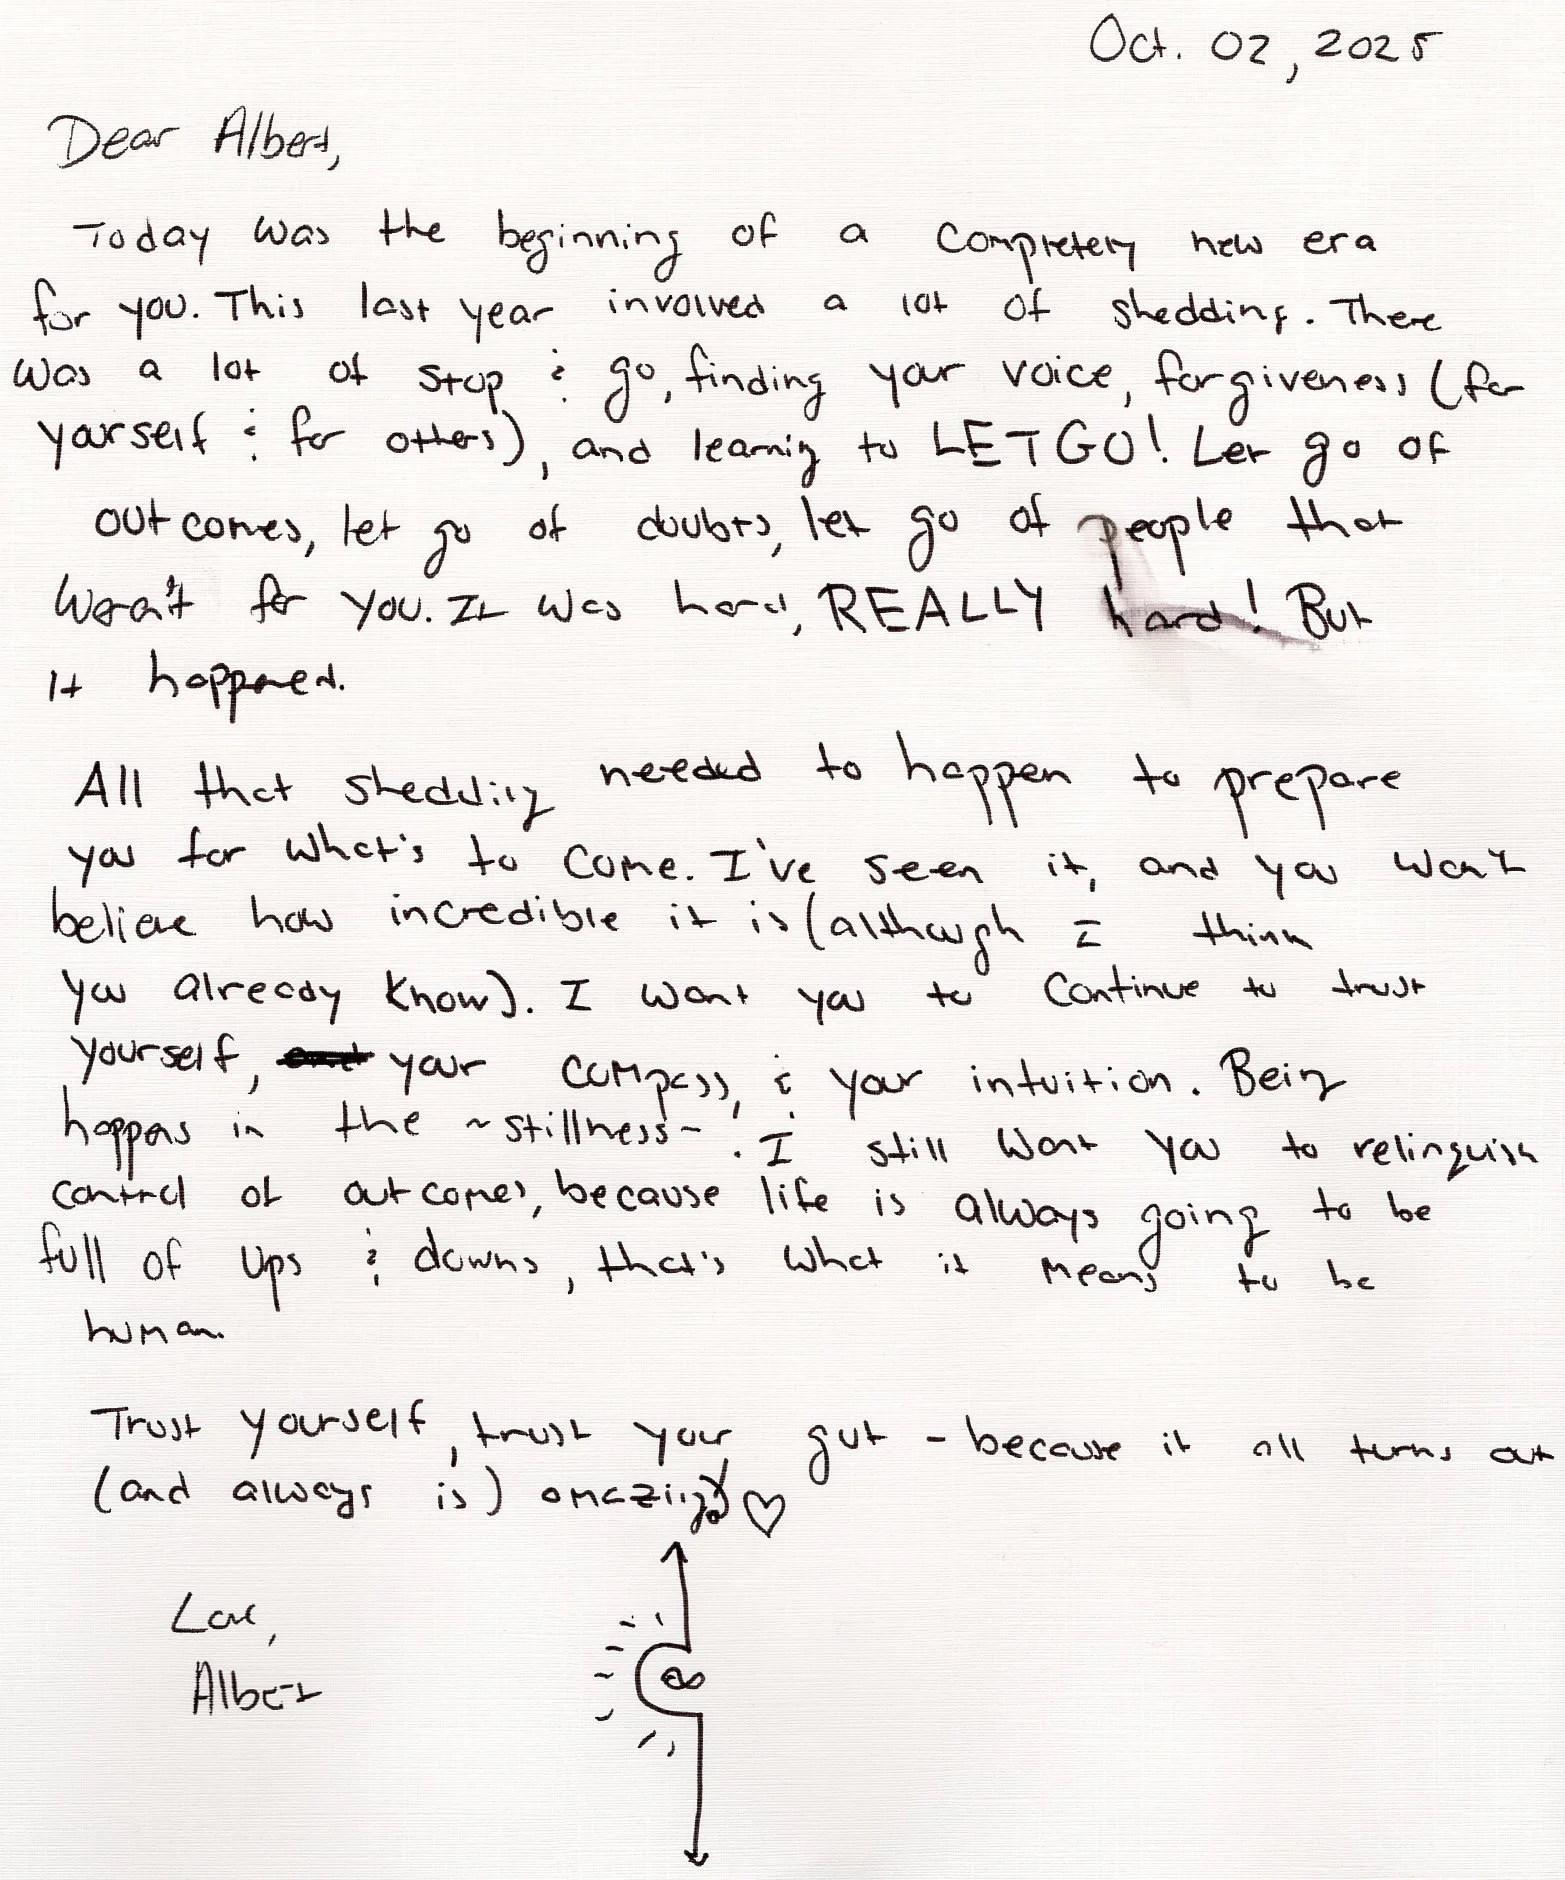 Oct. 02, 2025
Dear Albert,
Today was the beginning of a completely new era
for you. This last year involved a lot of shedding. There
was a lot of stop & go, finding your voice, forgiveness (for
yourself & for others), and learning to LET GO! Let go of
outcomes, let go of doubts, let go of people that
weren't for you. It was hard, REALLY hard! But
it happened.
All that shedding needed to happen to prepare
you for what's to come. I've seen it, and you won't
believe how incredible it is (although I think
you already know). I want you to continue to trust
yourself, your compass, & your intuition. Being
happens in the ~stillness~. I still want you to relinquish
control of outcomes, because life is always going to be
full of ups & downs, that's what it means to be
human.
Trust yourself, trust your gut - because it all turns out
(and always is) amazing! ♡
Love,
Albert